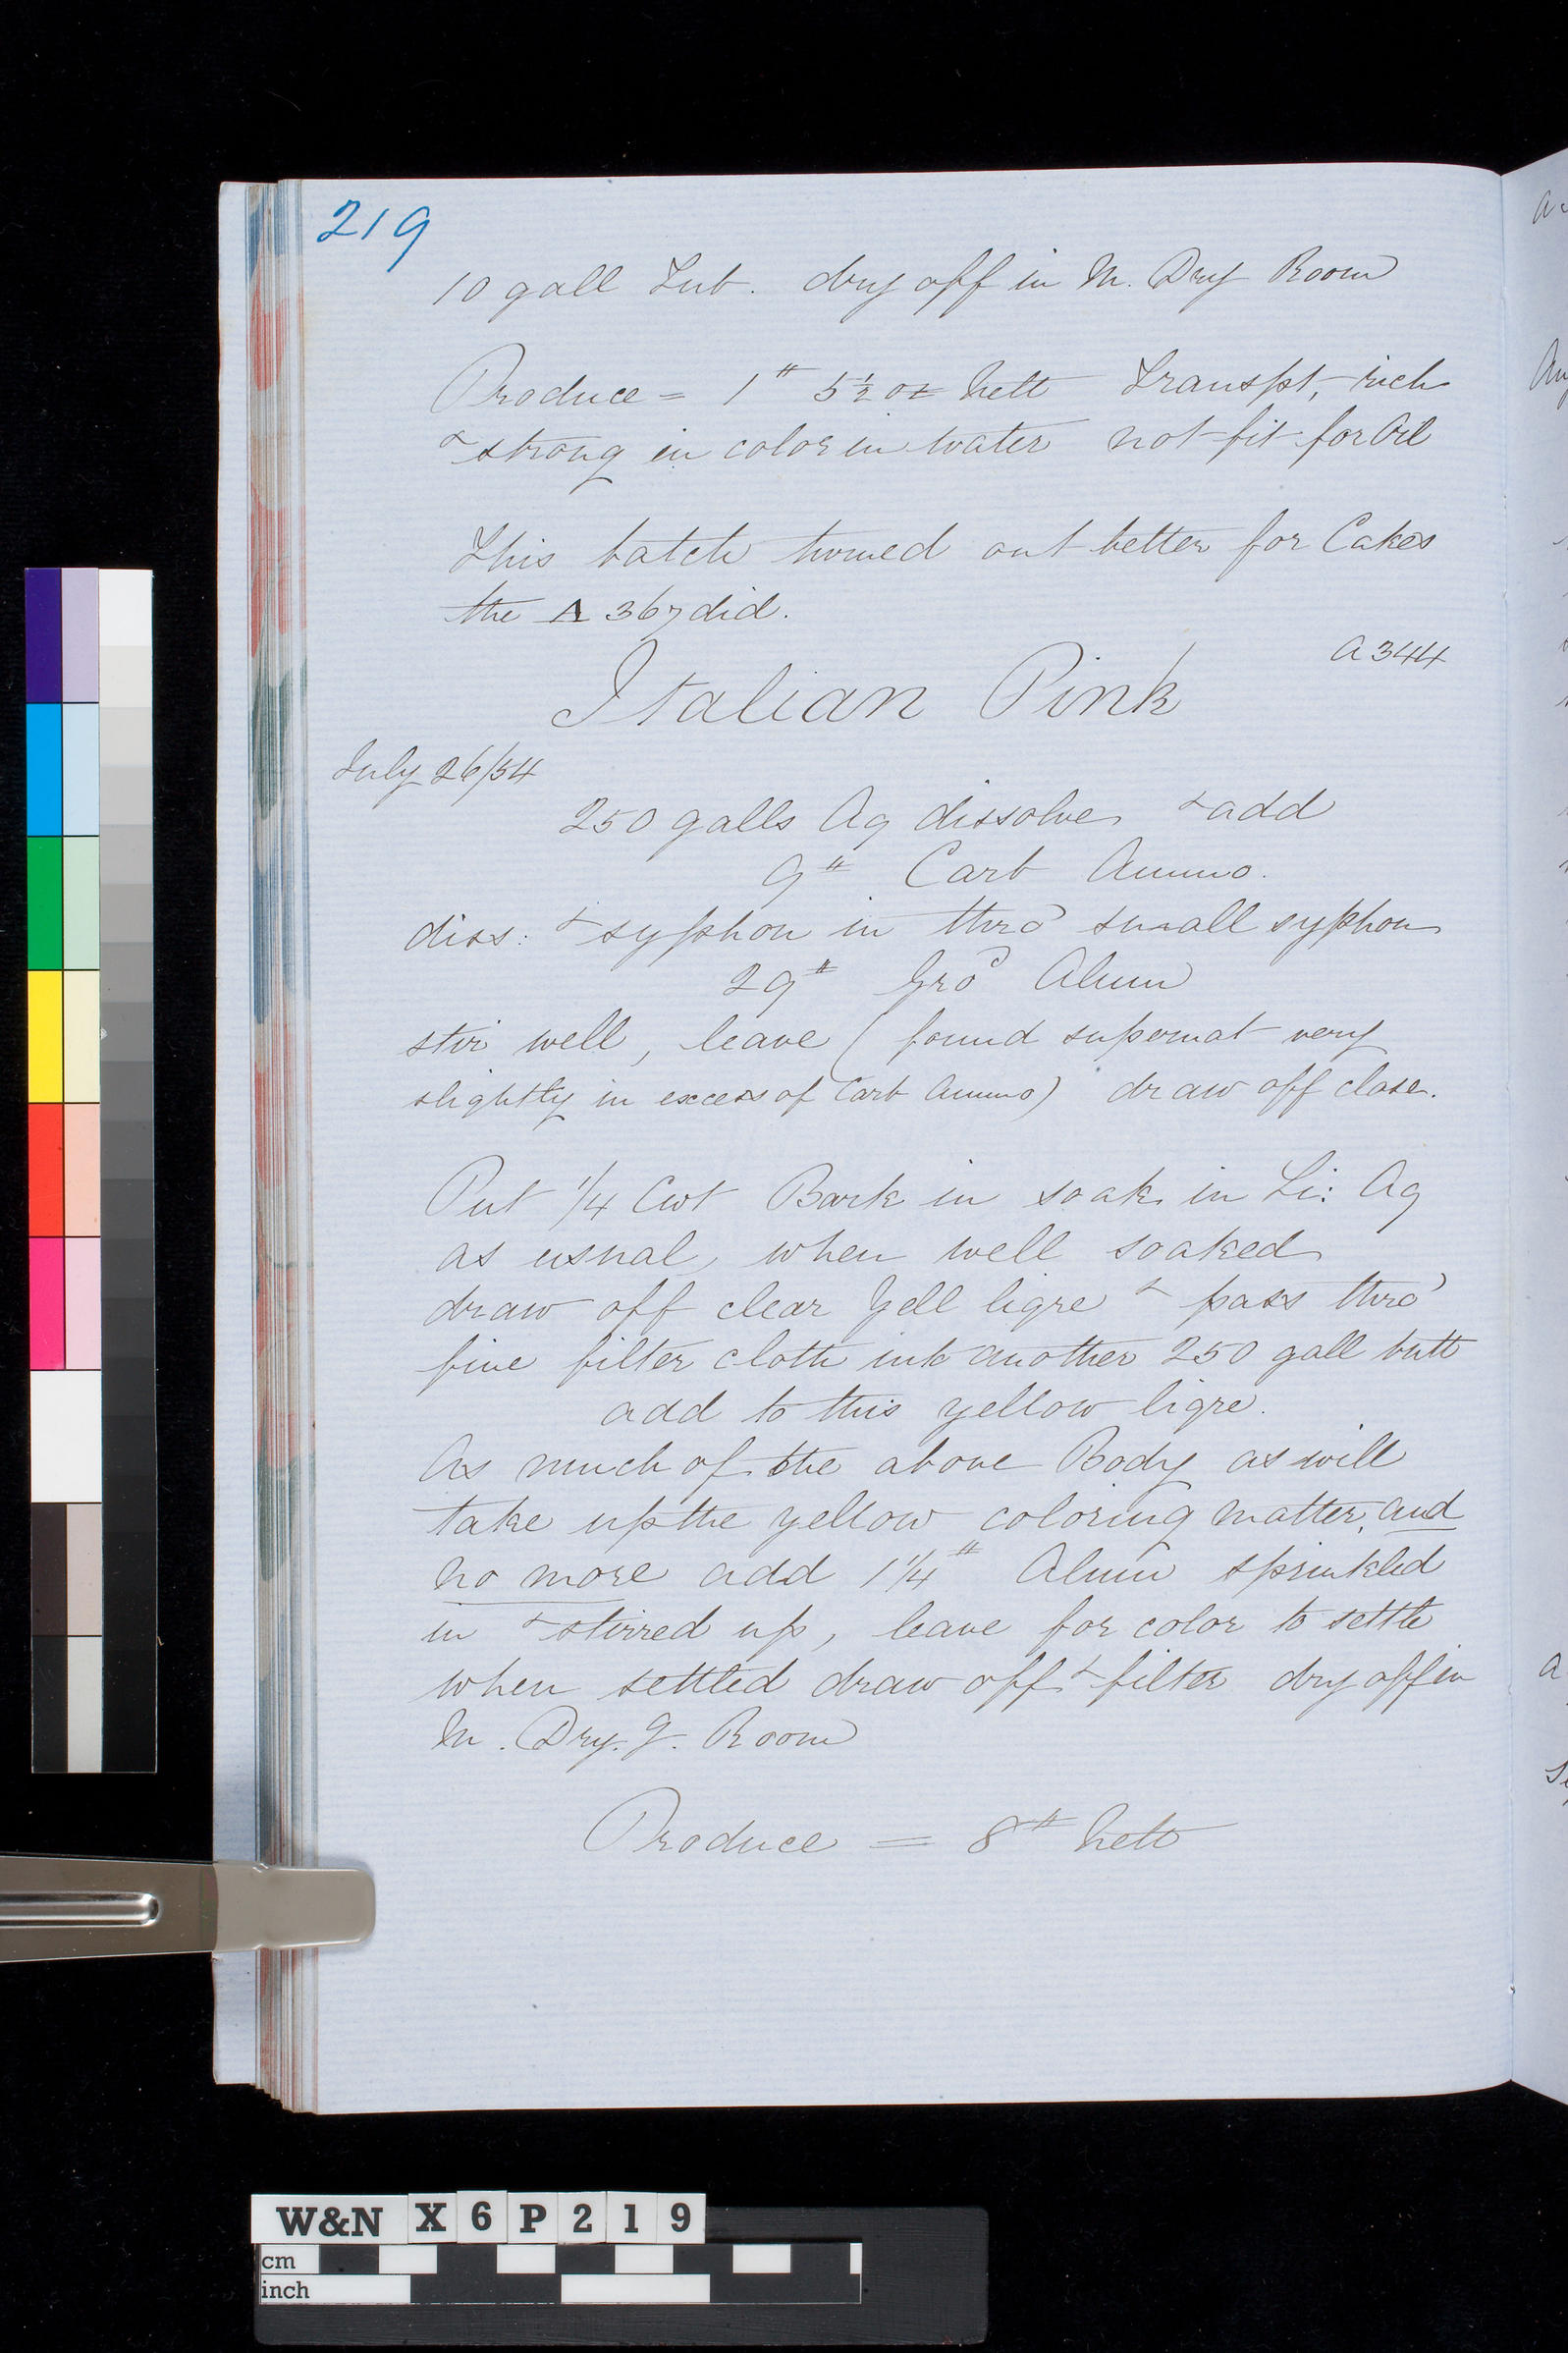 219
10 gall Tub. dry off in M. Dry Room
Produce = 1# 5½ oz nett Transpt, rich
& strong in color in water not fit for Oil
This batch turned out better for Cakes
the A 367 did.
A 344
Italian Pink
July 26/54
250 galls Aq dissolve & add
9# Carb Ammo.
diss: & syphon in thro' small syphon
29# Gro'd Alum
stir well, leave (found supernat very
slightly in excess of Carb Ammo) draw off close.
Put 1/4 Cwt Bark in soak in Li: Aq
as usual, when well soaked
draw off clear Yell liqre & pass thro'
fine filter cloth into another 250 gall butt
add to this yellow liqre.
As much of the above Body as will
take up the yellow coloring matter, and
no more add 1 1/4# Alum sprinkled
in & stirred up, leave for color to settle
when settled draw off & filter dry off in
M. Dry. g. Room
Produce = 8# nett
W&N X 6 P 2 1 9
cm
inch